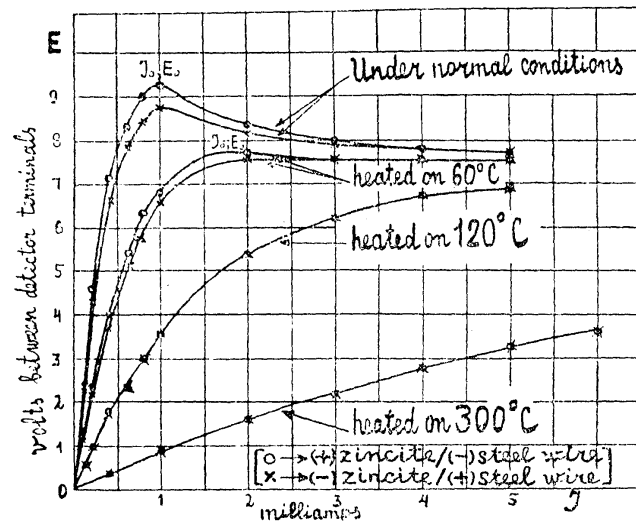 E
J₀;E₀
Under normal conditions
9
8
J₀;E₀
heated on 60°C
7
6
heated on 120°C
5
4
3
2
heated on 300°C
1
volts bitween detector terminals
[o→(+)zincite/(-)steel wire
x→(-)zincite/(+)steel wire]
0
1
2
3
4
5
J
milliamps